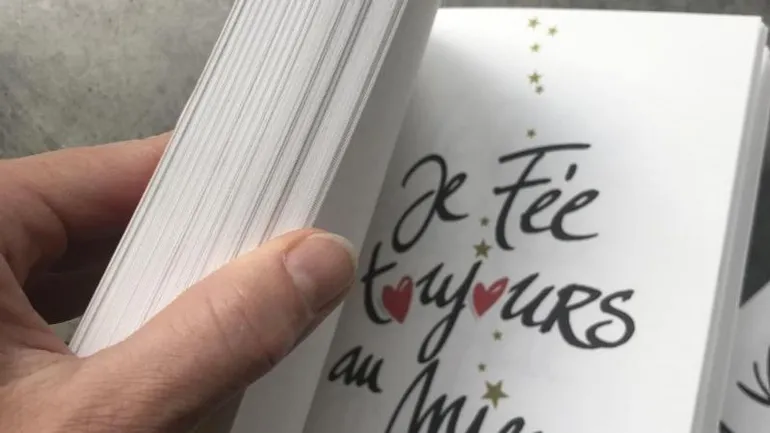 Je Fée
toujours
au